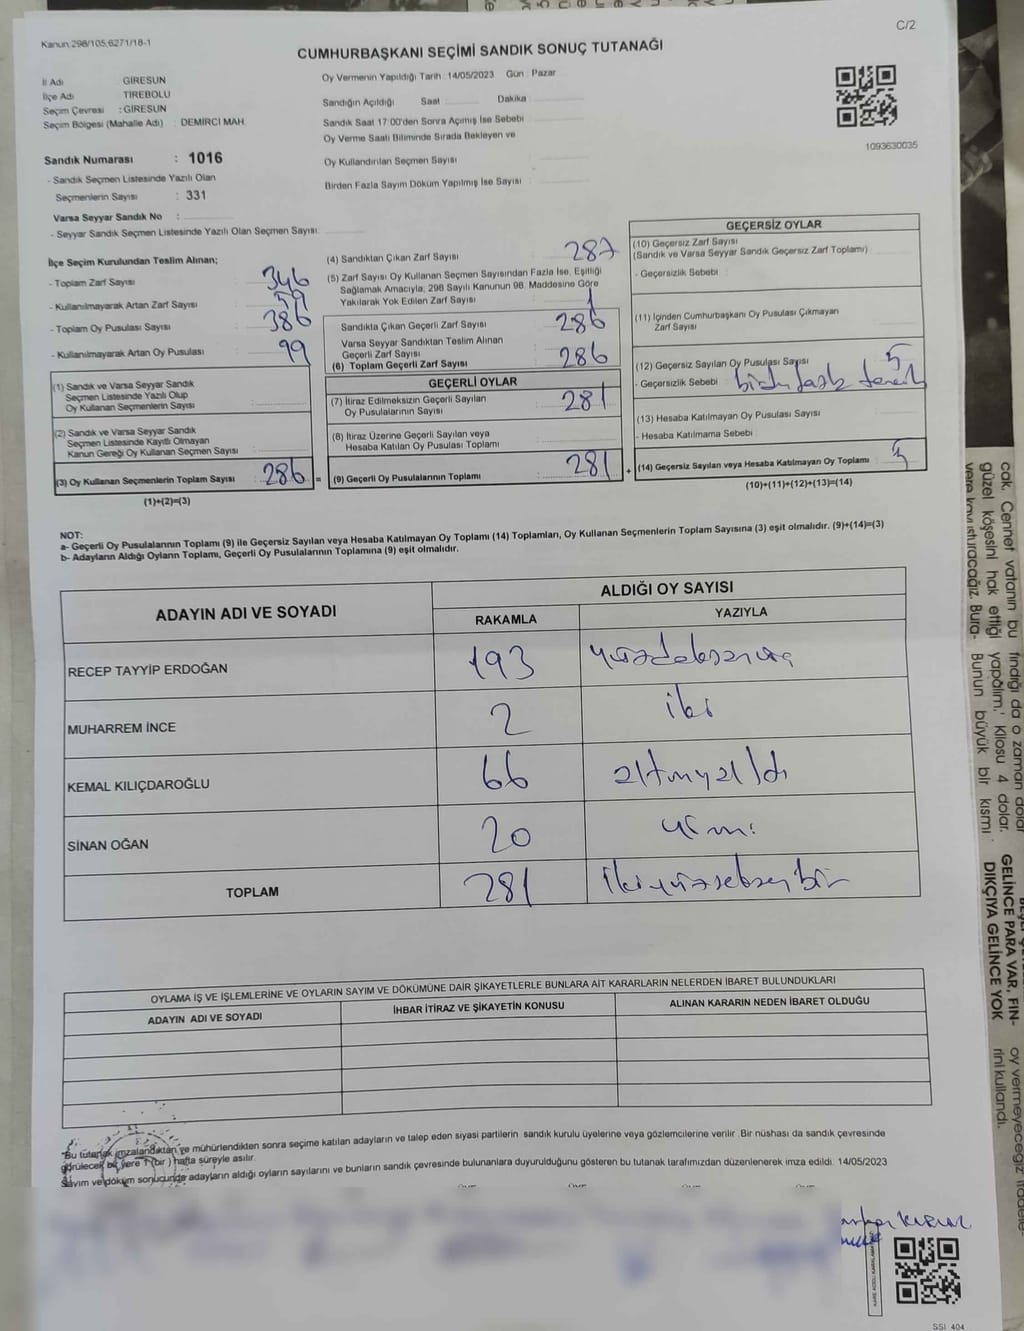 C/2
Kanun;298/105;6271/18-1
CUMHURBAŞKANI SEÇİMİ SANDIK SONUÇ TUTANAĞI
İl Adı GİRESUN
İlçe Adı TİREBOLU
Seçim Çevresi : GİRESUN
Seçim Bölgesi (Mahalle Adı) : DEMİRCİ MAH.
Sandık Numarası : 1016
- Sandık Seçmen Listesinde Yazılı Olan
Seçmenlerin Sayısı : 331
Varsa Seyyar Sandık No :
- Seyyar Sandık Seçmen Listesinde Yazılı Olan Seçmen Sayısı:
Oy Vermenin Yapıldığı Tarih : 14/05/2023 Gün : Pazar
Sandığın Açıldığı Saat Dakika
Sandık Saat 17:00'den Sonra Açımış İse Sebebi
Oy Verme Saati Bitiminde Sırada Bekleyen ve
Oy Kullandırılan Seçmen Sayısı
Birden Fazla Sayım Döküm Yapılmış İse Sayısı :
1093630035
İlçe Seçim Kurulundan Teslim Alınan;
- Toplam Zarf Sayısı : 346
- Kullanılmayarak Artan Zarf Sayısı : 59
- Toplam Oy Pusulası Sayısı : 386
- Kullanılmayarak Artan Oy Pusulası : 99
(1) Sandık ve Varsa Seyyar Sandık
Seçmen Listesinde Yazılı Olup
Oy Kullanan Seçmenlerin Sayısı :
(2) Sandık ve Varsa Seyyar Sandık
Seçmen Listesinde Kayıtlı Olmayan
Kanun Gereği Oy Kullanan Seçmen Sayısı :
(3) Oy Kullanan Seçmenlerin Toplam Sayısı : 286 =
(1)+(2)=(3)
(4) Sandıktan Çıkan Zarf Sayısı : 287
(5) Zarf Sayısı Oy Kullanan Seçmen Sayısından Fazla İse, Eşitliği
Sağlamak Amacıyla, 298 Sayılı Kanunun 98. Maddesine Göre
Yakılarak Yok Edilen Zarf Sayısı : 1
Sandıkta Çıkan Geçerli Zarf Sayısı : 286
Varsa Seyyar Sandıktan Teslim Alınan
Geçerli Zarf Sayısı
(6) Toplam Geçerli Zarf Sayısı : 286
GEÇERLİ OYLAR
(7) İtiraz Edilmeksizin Geçerli Sayılan
Oy Pusulalarının Sayısı : 281
(8) İtiraz Üzerine Geçerli Sayılan veya
Hesaba Katılan Oy Pusulası Toplamı
(9) Geçerli Oy Pusulalarının Toplamı : 281 +
GEÇERSİZ OYLAR
(10) Geçersiz Zarf Sayısı
(Sandık ve Varsa Seyyar Sandık Geçersiz Zarf Toplamı)
- Geçersizlik Sebebi :
(11) İçinden Cumhurbaşkanı Oy Pusulası Çıkmayan
Zarf Sayısı
(12) Geçersiz Sayılan Oy Pusulası Sayısı 5
- Geçersizlik Sebebi : birden fazla
(13) Hesaba Katılmayan Oy Pusulası Sayısı
- Hesaba Katılmama Sebebi :
(14) Geçersiz Sayılan veya Hesaba Katılmayan Oy Toplamı : 5
(10)+(11)+(12)+(13)=(14)
NOT:
a- Geçerli Oy Pusulalarının Toplamı (9) ile Geçersiz Sayılan veya Hesaba Katılmayan Oy Toplamı (14) Toplamları, Oy Kullanan Seçmenlerin Toplam Sayısına (3) eşit olmalıdır. (9)+(14)=(3)
b- Adayların Aldığı Oyların Toplamı, Geçerli Oy Pusulalarının Toplamına (9) eşit olmalıdır.
ADAYIN ADI VE SOYADI ALDIĞI OY SAYISI
RAKAMLA YAZIYLA
RECEP TAYYİP ERDOĞAN 193 yüzdoksanüç
MUHARREM İNCE 2 iki
KEMAL KILIÇDAROĞLU 66 altmışaltı
SİNAN OĞAN 20 yirmi
TOPLAM 281 ikiyüzseksenbir
OYLAMA İŞ VE İŞLEMLERİNE VE OYLARIN SAYIM VE DÖKÜMÜNE DAİR ŞİKAYETLERLE BUNLARA AİT KARARLARIN NELERDEN İBARET BULUNDUKLARI
ADAYIN ADI VE SOYADI İHBAR İTİRAZ VE ŞİKAYETİN KONUSU ALINAN KARARIN NEDEN İBARET OLDUĞU
"Bu tutanak imzalandıktan ve mühürlendikten sonra seçime katılan adayların ve talep eden siyasi partilerin sandık kurulu üyelerine veya gözlemcilerine verilir. Bir nüshası da sandık çevresinde
görülecek bir yere 1 (bir ) hafta süreyle asılır.
Sayım ve döküm sonucunda adayların aldığı oyların sayılarını ve bunların sandık çevresinde bulunanlara duyurulduğunu gösteren bu tutanak tarafımızdan düzenlenerek imza edildi. 14/05/2023
SSI 404
cak. Cennet vatanın bu
güzel köşesini hak ettiği
yere kavuşturacağız. Bura-
fındığı da o zaman dolar
yapalım.' Kilosu 4 dolar.
Bunun büyük bir kısmı
GELİNCE PARA VAR, FIN-
DIKÇIYA GELİNCE YOK
oy vermeyeceğiz ifadele-
rini kullandı.